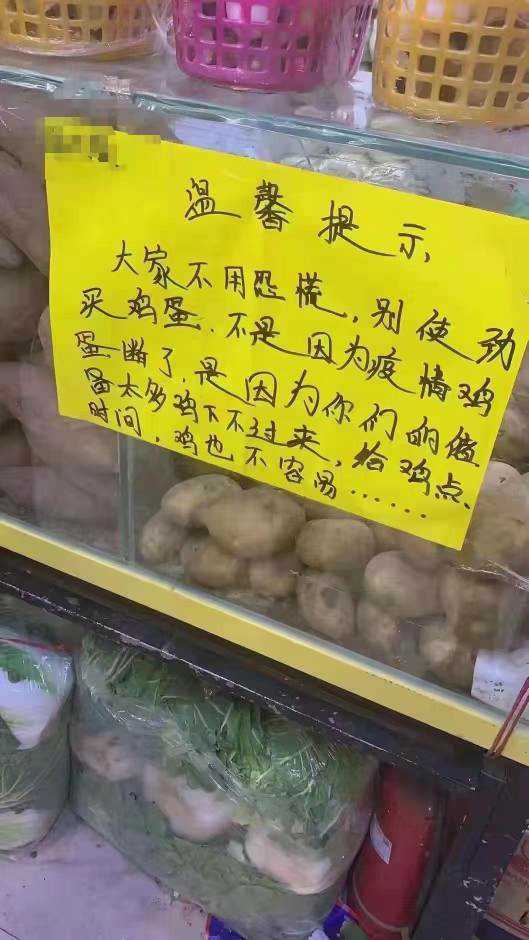 温馨提示,
大家不用恐慌,别使劲
买鸡蛋.不是因为疫情鸡
蛋断了,是因为你们的储
量太多鸡下不过来,给鸡点
时间,鸡也不容易……